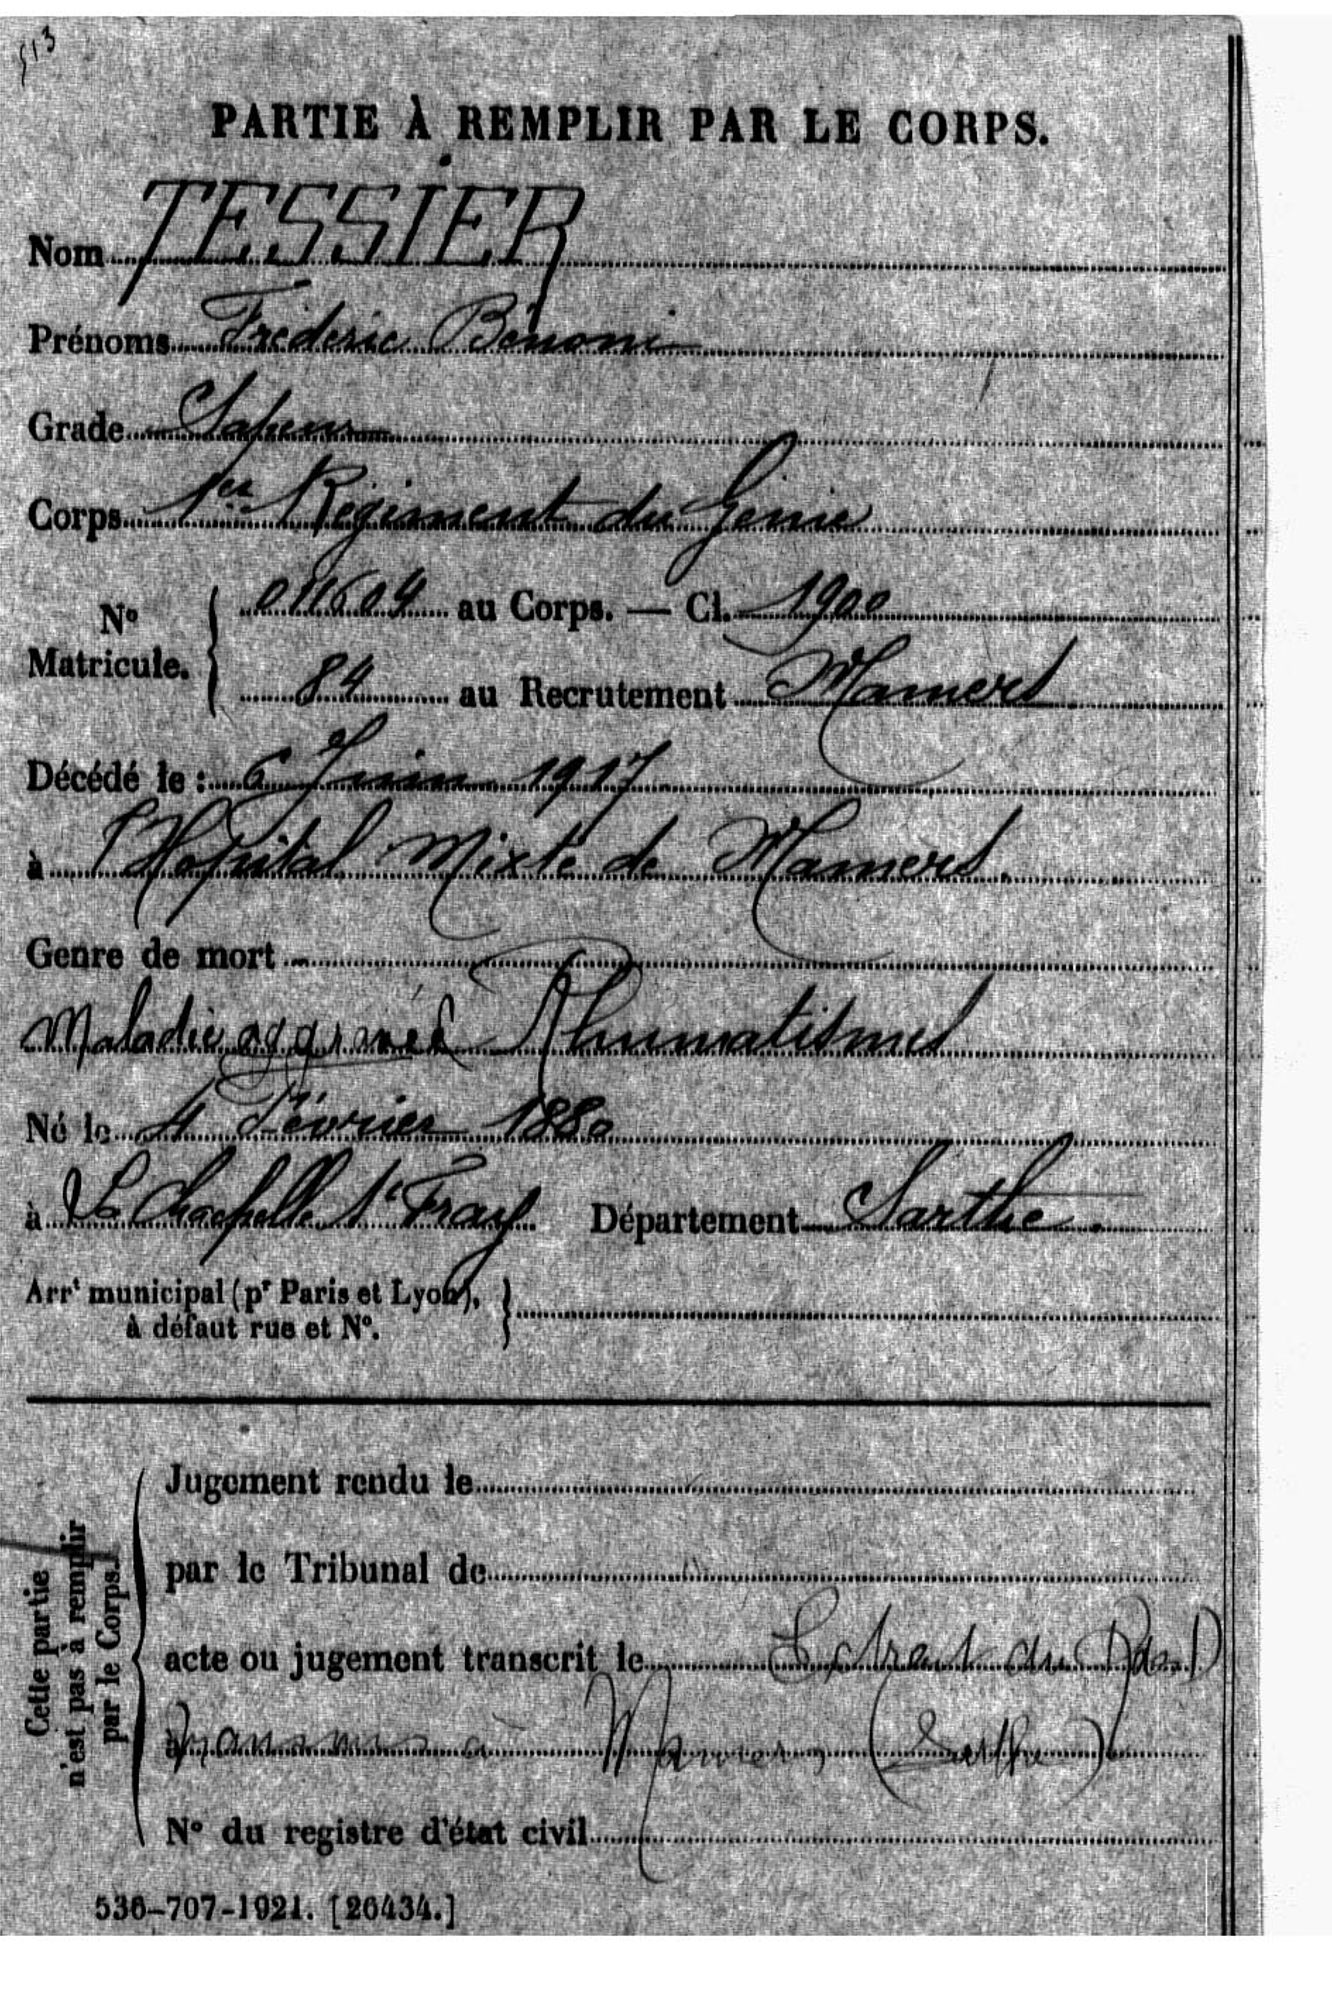 513
PARTIE À REMPLIR PAR LE CORPS.
Nom TESSIER
Prénoms Fréderic Bénoni
Grade Sapeur
Corps 1er Régiment du Génie
No Matricule. { 011604 au Corps. — Cl. 1900
84 au Recrutement Mamers
Décédé le : 6 Juin 1917
à l'Hopital Mixte de Mamers.
Genre de mort
Maladie aggravée Rhumatismes
Né le 4 Février 1880
à La Chapelle St Fray Département Sarthe.
Arrt municipal (pr Paris et Lyon), à défaut rue et No. }
Cette partie n'est pas à remplir par le Corps. {
Jugement rendu le
par le Tribunal de
acte ou jugement transcrit le Extrait du
à à Mamers (Sarthe)
No du registre d'état civil
536-707-1921. [26434.]